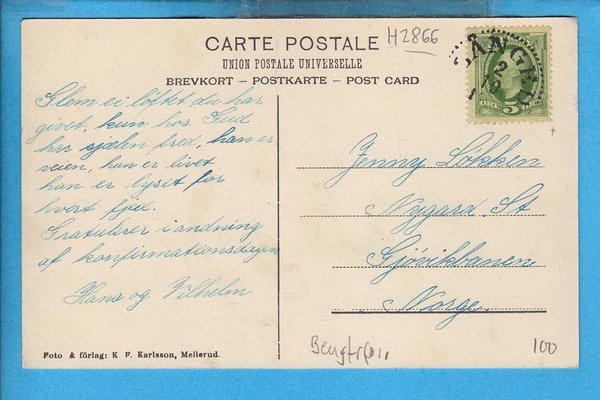 H2866
CARTE POSTALE
UNION POSTALE UNIVERSELLE
BREVKORT — POSTKARTE — POST CARD
Glem ei løftet du har
givet, kun hos Gud
har sjælen fred, han er
veien, han er livet
han er lyset for
hvert fjed.
Gratulerer i andning
af konfirmationsdagen
Hans og Vilhelm
ÖRE 5
Jenny Løkken
Nygard. St
Gjøvikbanen
Norge.
Foto & förlag: K F. Karlsson, Mellerud.
100